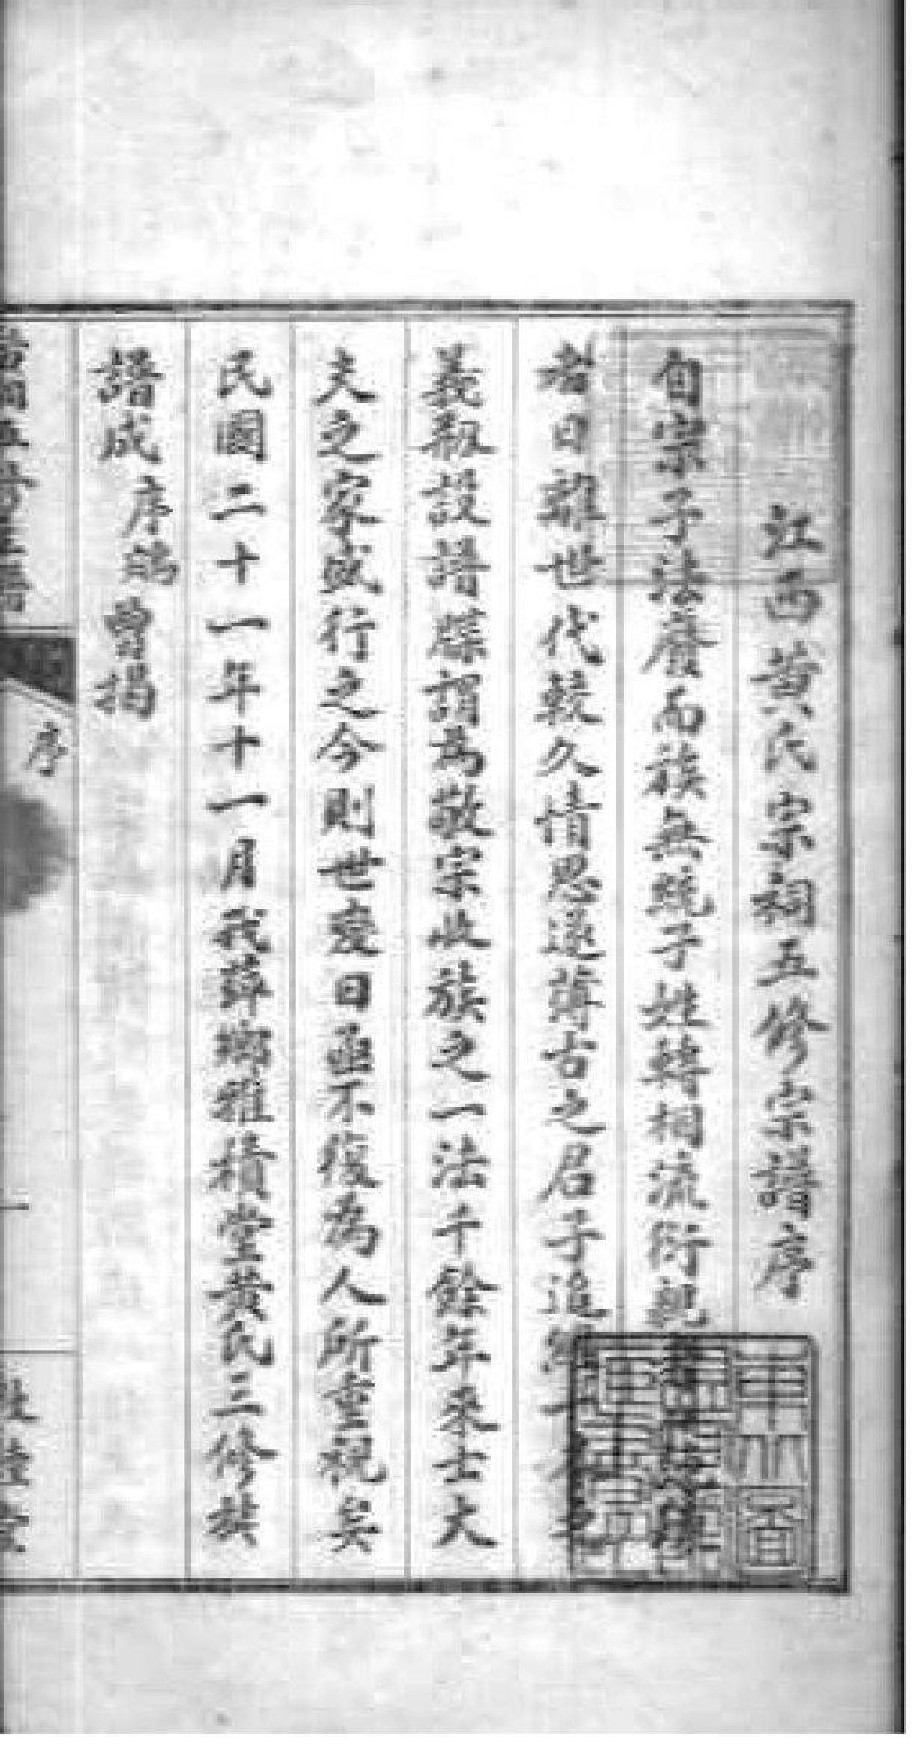 江西黄氏宗祠五修宗譜序
自宗子法廢而族無統子姓轉相流衍親
者日離世代較久情思遂薄古之君子追
義軔設譜牒謂爲敬宗收族之一法千餘年來士大
夫之家盛行之今則世變日亟不復為人所重視矣
民國二十一年十一月我萍鄉雅積堂黄氏三修族
譜成序鵠曾揭
序
一